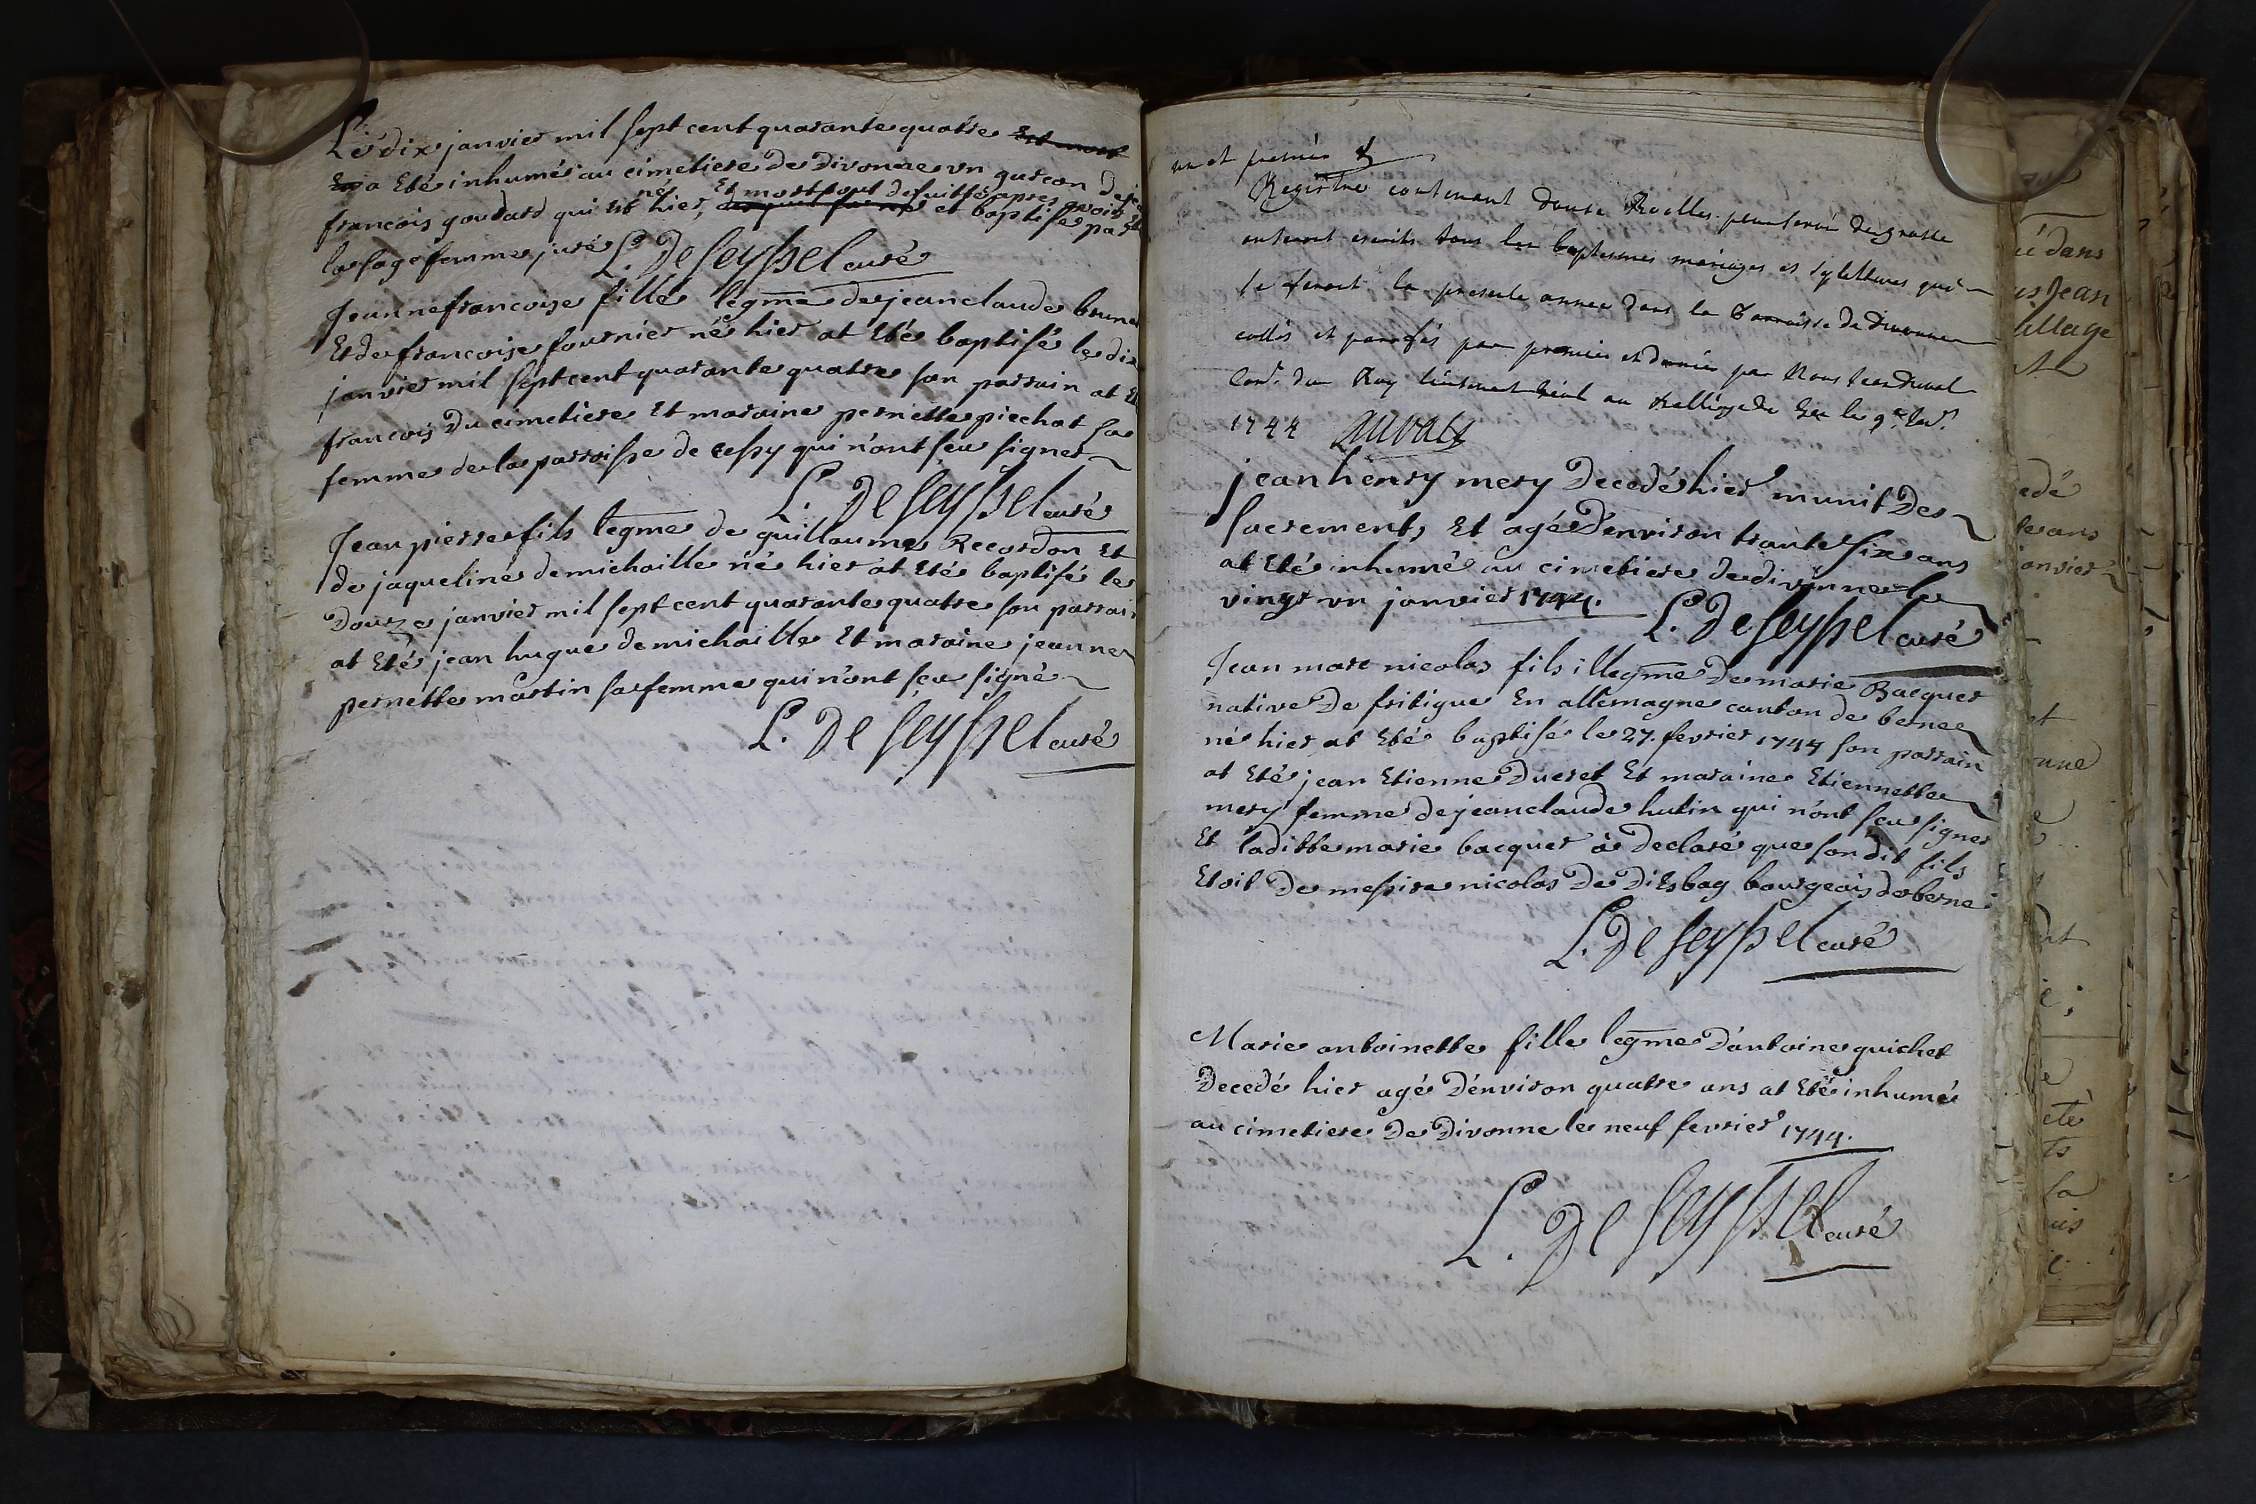 Le dix janvier mil sept cent quarante quatre Est mort
En a Eté inhumé au cimetiere de divonne un garcon de jean
francois goudard qui Est né hier, Et mort tout de suitte apres avoir Eté
et baptisé par
la sage femme jurée L. De Seyssel curé
Jeanne francoise fille legme de jean claude brunet
Et de francoise fournier né hier at Eté baptisé le dix
janvier mil sept cent quarante quatre son parrain at Eté
francois du cimetiere Et maraine pernette piechat sa
femme de la parroisse de cessy qui n'ont sçu signer
L. De Seyssel curé
Jean pierre fils legme de guillaume Recordon Et
de jaqueline de michaille né hier at Eté baptisé le
Douze janvier mil sept cent quarante quatre son parrain
at Eté jean hugue de michaille Et maraine jeanne
pernette martin sa femme qui n'ont sçu signé
L. De Seyssel curé
un et premier
Registre contenant douse Roolles pour servir de grosse
ou seront escrits tous les baptesmes mariages et sepultures qui
se feront la presente annee dans la Parroisse de Divonne
cottés et parafés par premier et dernier par Nous Jean Duval
Conr. du Roy lieutenant au Balliage de Gex le 9e Janr.
1744 Duval
jean henry mery Decedé hier munit Des
sacrements Et agé D'environ trante six ans
at Eté inhumé au cimetiere de divonne le
vingt un janvier 1744.
L. De Seyssel curé
Jean marc nicolas fils illegme De marie Bacquer
native De fritigue En allemagne canton de berne
né hier at Eté baptisé le 27. fevrier 1744 son parrain
at Eté jean Etienne Ducret Et maraine Etiennette
mery femme de jean claude hutin qui n'ont sçu signer
Et laditte marie bacquer a Declaré que son dit fils
Etoit De messire nicolas De Diesbag bourgeois de berne
L. De Seyssel curé
Marie antoinette fille legme D'antoine guichet
Decedé hier agé D'environ quatre ans at Eté inhumée
au cimetiere De Divonne le neuf fevrier 1744.
L. De Seyssel curé
é dans
Jean
village
edé
ans
janvier
et